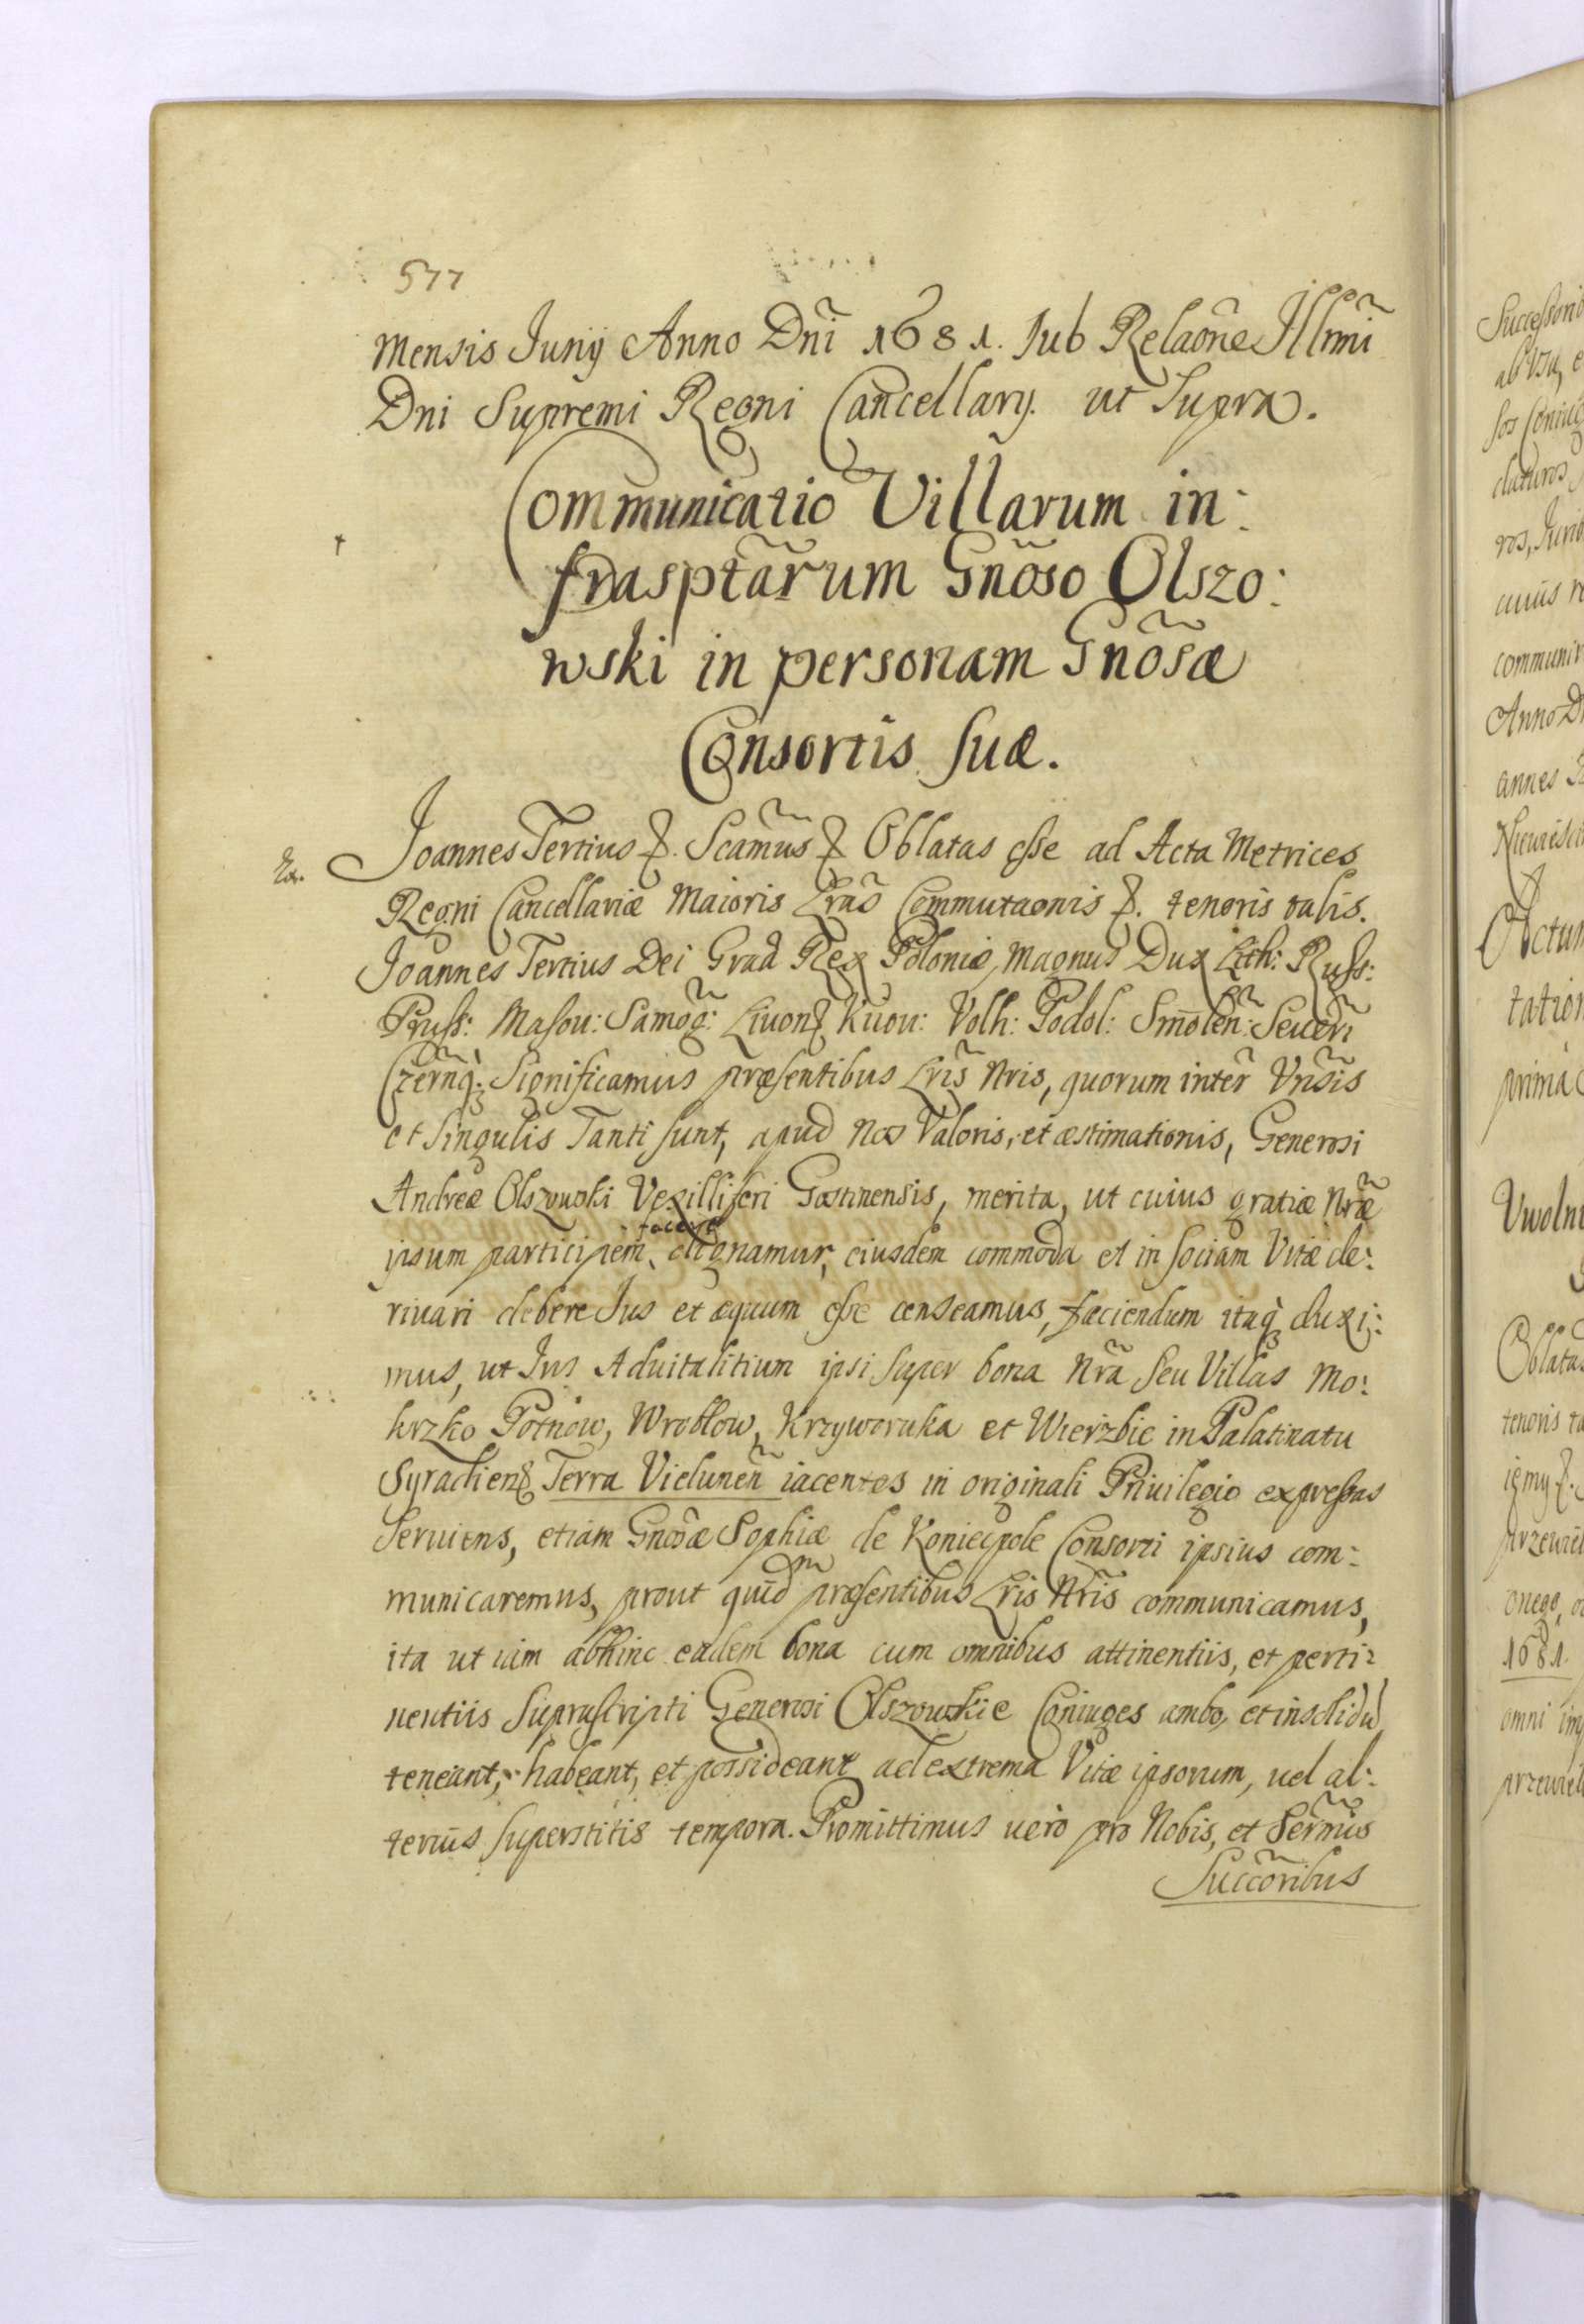 577
Mensis Junÿ Anno Dñi 1681. Sub Relaõne Illrmi
Dni Supremi Regni Cancellarÿ. ut Supra.
Communicatio Villarum in:
frasptarum Gnõso Olszo:
wski in personam Gnõsæ
Consortis suæ.
Joannes Tertius &. Scamus & Oblatas esse ad Acta Metrices
Regni Cancellariæ Maioris Lras Commutaonis &. tenoris talis.
Joannes Tertius Dei Grad Rex Poloniæ, Magnus Dux Lith: Russ:
Pruss: Masou: Samog: Liuon& Kuou: Volh: Podol: Smolen: Seueri
Czernq; Significamus præsentibus Lris Nris, quorum inter Vnsis
et singulis Tanti sunt, apud Nos Valoris, et æstimationis, Generosi
Andreæ Olszowski Vexilliferi Gostinensis, merita, ut cuius gratiæ Nræ
facere
ipsum participem, dignamur, eiusdem commoda et in sociam Vitæ de:
riuari debere Jus et æquum esse censeamus, faciendum itaq; duxi:
mus, ut Jus Aduitalitium ipsi super bona Nra seu Villas Mo:
krzko Potnow, Wroblow, Krzyworuka et Wierzbie in Palatinatu
Syradien& Terra Vielunen iacentes in originali Priuilegio expressas
seruiens, etiam Gnosæ Sophiæ de Koniecpole Consorti ipsius com:
municaremus, prout quid præsentibus Lris Nris communicamus,
ita ut iam abhinc eadem bona cum omnibus attinentiis, et perti:
nentiis suprascripti Generosi Olszowskie Coniuges ambo, et insolidu
teneant, habeant, et possideant ad extrema Vitæ ipsorum, uel al:
terius superstitis tempora. Promittimus uero pro Nobis, et Sermis
Succoribus